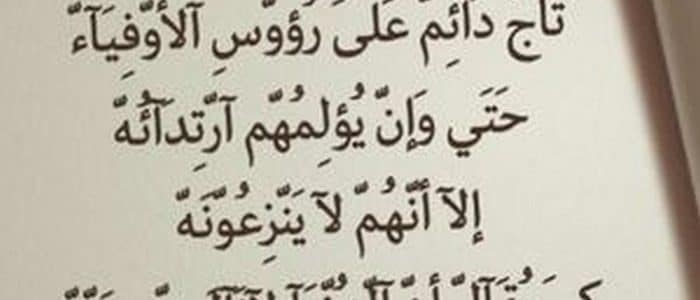 تَاج دَائِمّ عَلَىَ رُؤوّسِ آلأوّفِيَآءّ
حَتَي وَإنّ يُؤلِمهُمّ آرّتِدآئُهّ
إلآ أنّهُمّ لآ يَنّزِعوُنَهّ